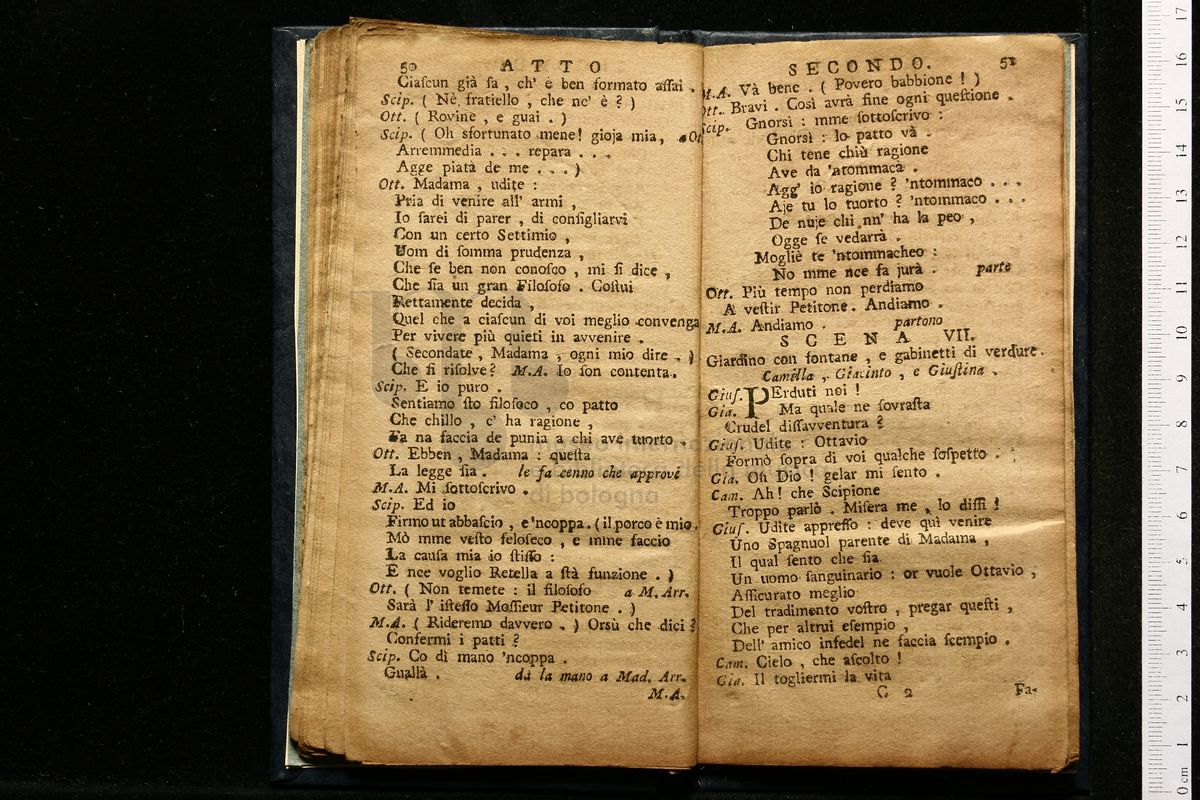 50 ATTO
Ciaſcun già ſa , ch' è ben formato aſſai .
Scip. ( Nè, fratiello , che nc' è ? )
Ott. ( Rovine , e guai . )
Scip. ( Oh sfortunato mene! gioja mia,
Arremmedia . . . repara . . .
Agge piatà de me . . . )
Ott. Madama , udite :
Pria di venire all' armi ,
Io ſarei di parer , di conſigliarvi
Con un certo Settimio ,
Uom di ſomma prudenza ,
Che ſe ben non conoſco , mi ſi dice ,
Che ſia un gran Filoſofo . Coſtui
Rettamente decida ,
Quel che a ciaſcun di voi meglio convenga
Per vivere più quieti in avvenire .
( Secondate , Madama , ogni mio dire . )
Che ſi riſolve ? M.A. Io ſon contenta .
Scip. E io puro .
Sentiamo ſto filoſoco , co patto
Che chillo , c' ha ragione ,
Fa na faccia de punia a chi ave tuorto .
Ott. Ebben , Madama : queſta
La legge ſia . le fa cenno che approvi
M.A. Mi ſottoſcrivo .
Scip. Ed io
Firmo ut abbaſcio , e 'ncoppa . ( il porco è mio .
Mò mme veſto feloſeco , e mme faccio
La cauſa mia io ſtiſſo :
E nce voglio Retella a ſtà funzione . )
Ott. ( Non temete : il filoſofo a M. Arr.
Sarà l' iſteſſo Moſſieur Petitone . )
M.A. ( Rideremo davvero . ) Orsù che dici ?
Confermi i patti ?
Scip. Co dì mano 'ncoppa .
Guallà . dà la mano a Mad. Arr.
M.A.
SECONDO. 51
M.A. Và bene . ( Povero babbione ! )
Ott. Bravi . Così avrà fine ogni queſtione .
Scip. Gnorsì : mme ſottoſcrivo :
Gnorsì : lo patto và .
Chi tene chiù ragione
Ave da 'ntommacà .
Agg' io ragione ? 'ntommaco . . .
Aje tu lo tuorto ? 'ntommaco . . .
De nuje chi nn' ha la peo ,
Ogge ſe vedarrà .
Mogliè te 'ntommacheo :
No mme nce fa jurà . parte
Ott. Più tempo non perdiamo
A veſtir Petitone . Andiamo .
M.A. Andiamo . partono
SCENA VII.
Giardino con fontane , e gabinetti di verdure .
Camilla , Giacinto , e Giuſtina .
Giuſ. PErduti noi !
Gia. Ma quale ne ſovraſta
Crudel diſſavventura ?
Giuſ. Udite : Ottavio
Formò ſopra di voi qualche ſoſpetto .
Gia. Oh Dio ! gelar mi ſento .
Cam. Ah ! che Scipione
Troppo parlò . Miſera me , lo diſſi !
Giuſ. Udite appreſſo : deve quì venire
Uno Spagnuol parente di Madama ,
Il qual ſento che ſia
Un uomo ſanguinario : or vuole Ottavio ,
Aſſicurato meglio
Del tradimento voſtro , pregar queſti ,
Che per altrui eſempio ,
Dell' amico infedel ne faccia ſcempio .
Cam. Cielo , che aſcolto !
Gia. Il togliermi la vita
C 2 Fa-